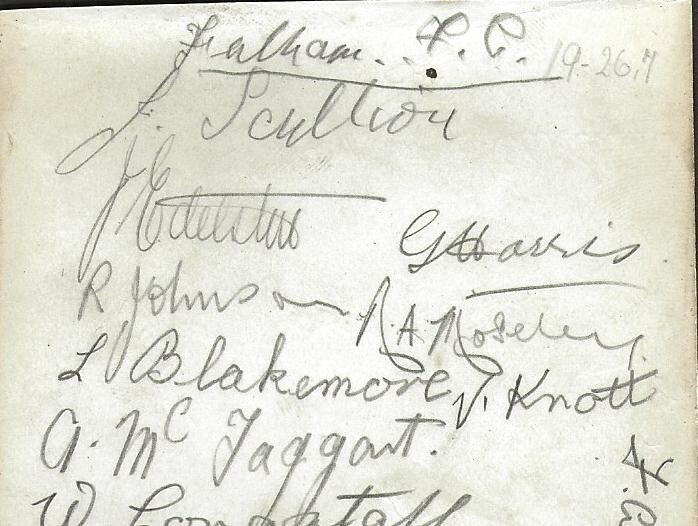 Fulham. F. C. 19-26.7
J. Scullion
J Edelston
G Harris
R Johnson
R A Moseley
L Blakemore
V. Knott
A. Mc Taggart.
W